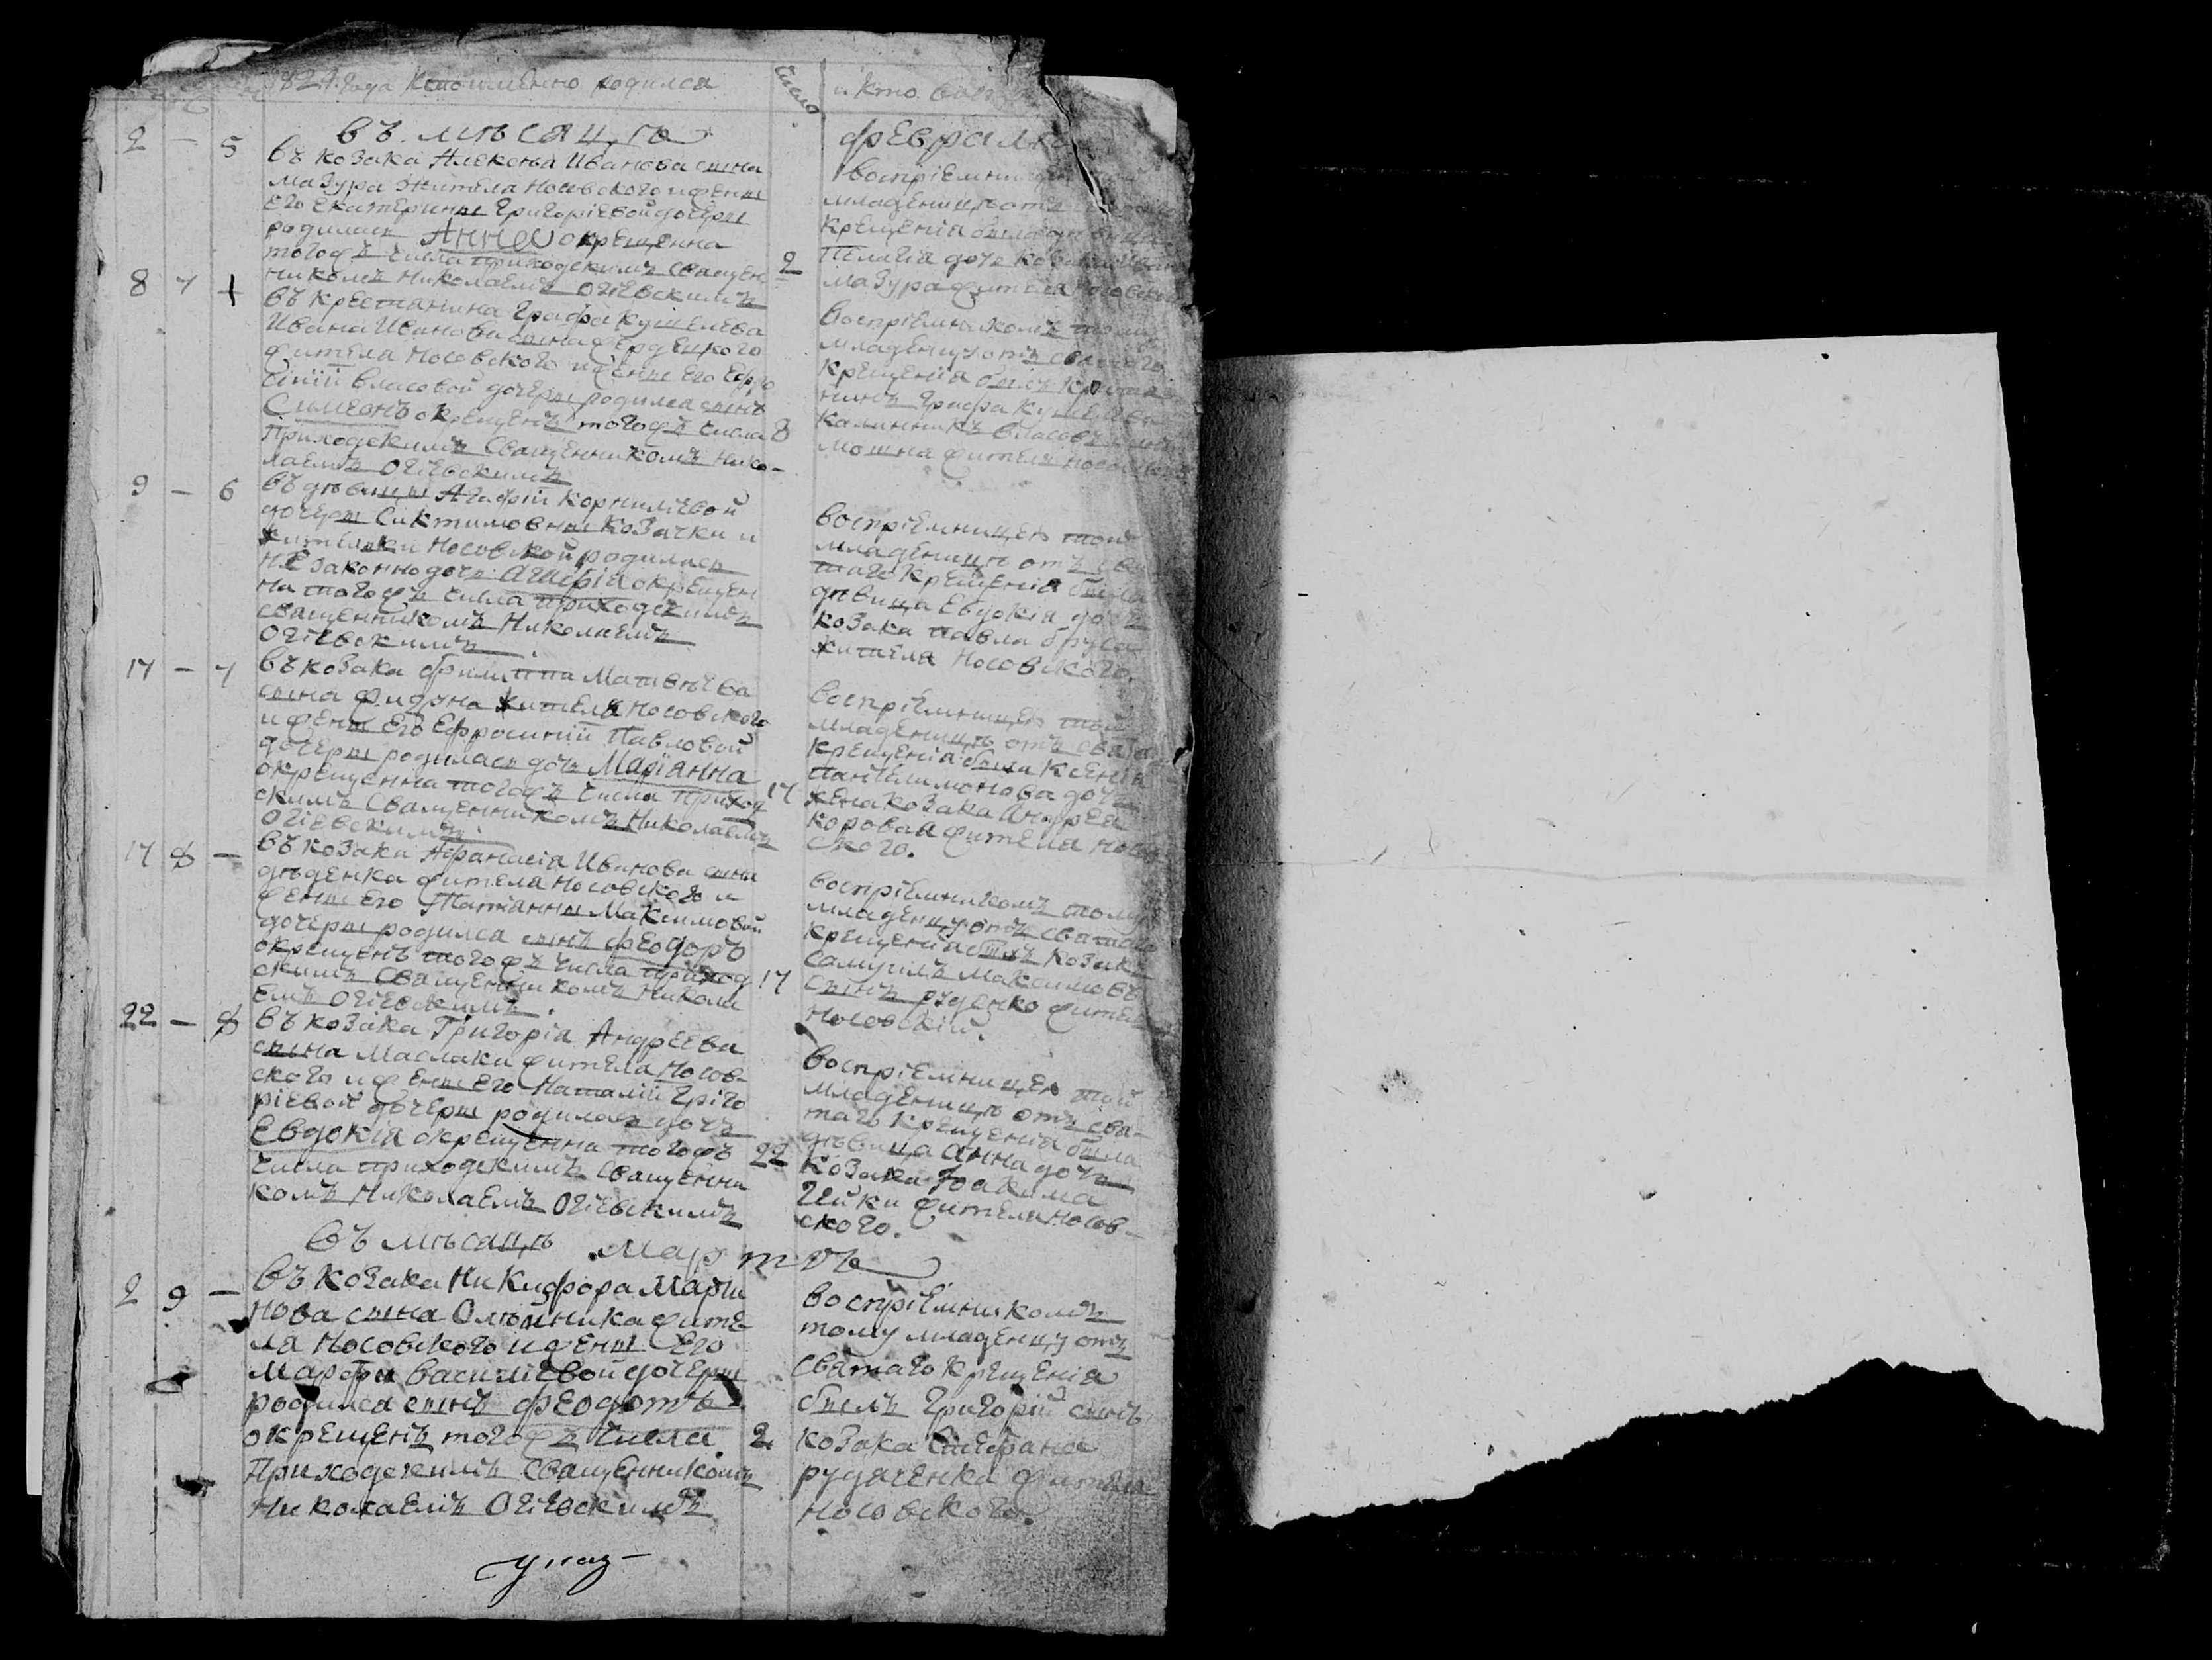 1827 года кто именно родился
число
и кто
въ месяце
феврале
2 — 5
въ козака Алексея Иванова сына
Мазура жителя носовского и жены
его Екатерины Григоріевой дочеры
родилась Анна окрещенна
тогожъ числа приходскимъ священ
никомъ Николаемъ Огіевскимъ
2
воспріемницею
младеницѣ отъ
крещенія была
Пелагія дочь козака Иван
мазура жителя носовско
8 7 +
въ крестянина графа Кушелева
Ивана Иванова сына
жителя носовского и жены его Ефро
синіи Власовой дочеры родился сынъ
Симеонъ окрещенъ тогожъ числа
Приходскимъ Священникомъ Нико-
лаемъ Огіевскимъ
8
воспріемникомъ тому
младенцу отъ святаго
крещенія былъ крестя
нинъ графа Кушелева
Калинникъ Власовъ сынъ
жителъ носовскій
9 — 6
въ дѣвицы Агафіи Корниліевой
дочеры козачки и
жителки носовской родилась
незаконно дочь Агафія окрещен
на тогожъ числа приходскимъ
священникомъ Николаемъ
Огіевскимъ
воспріемницею той
младеницѣ отъ свя
таго крещенія была
дѣвица Евдокія дочь
козака Павла
жителя носовского.
17 — 7
въ козака Филиппа Матвѣева
сына жителя носовского
и жены его Ефросиніи Павловой
дочеры родилась дочь Маріанна
окрещенна тогожъ числа Приход
скимъ Священникомъ Николаемъ
Огіевскимъ.
17
воспріемницею той
младеницѣ отъ свята
крещенія была Ксенія
Пантелимонова дочь
жена козака Андрея
Коровая жителя носов
ского.
17 8 —
въ козака Афанасія Иванова сына
дѣденка жителя носовского и
жены его Татіанны Максимовой
дочеры родился сынъ Феодоръ
окрещенъ тогожъ числа приход
скимъ Священникомъ Никола
емъ Огіевскимъ.
17
воспріемникомъ тому
младенцу отъ святаго
крещенія былъ козакъ
Самуилъ Максимовъ
сынъ руденко жител
носовскій.
22 — 8
въ козака Григорія Андреева
сына Маслака жителя Носов-
ского и жены его Наталіи Григо
ріевой дочеры родилась дочь
Евдокія окрещенна тогожъ
числа приходскимъ Священни
комъ Николаемъ Огіевскимъ
22
воспріемницею той
младеницѣ отъ свя-
таго крещенія была
дѣвица Анна дочь
козака Іоакима
жителя носов-
ского.
Въ мѣсяцѣ Мартѣ
2 9 —
въ козака Никифора Марти
нова сына Олѣйника жите
ля Носовского и жены его
Марфы Василіевой дочеры
родился сынъ Феодотъ
окрещенъ тогожъ числа
Приходскимъ Священникомъ
Николаемъ Огіевскимъ
2
воспріемникомъ
тому младенцу отъ
святаго крещенія
былъ Григорій сынъ
козака Стефана
рудяченка жителя
носовского.